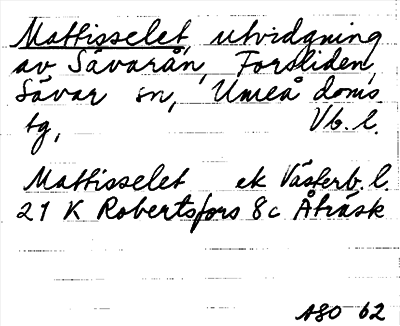 Mattisselet, utvidgning
av Sävarån, Forsliden,
Sävar sn, Umeå doms
tg, Vb. l.
Mattisselet ek Västerb. l.
21 K Robertsfors 8c Åträsk
ASO 62